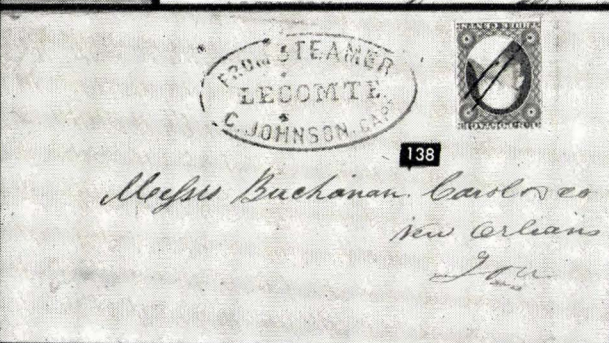 FROM STEAMER
LECOMTE.
C. JOHNSON, CAPT.
138
Messrs Buchanan Carol & co
New Orleans